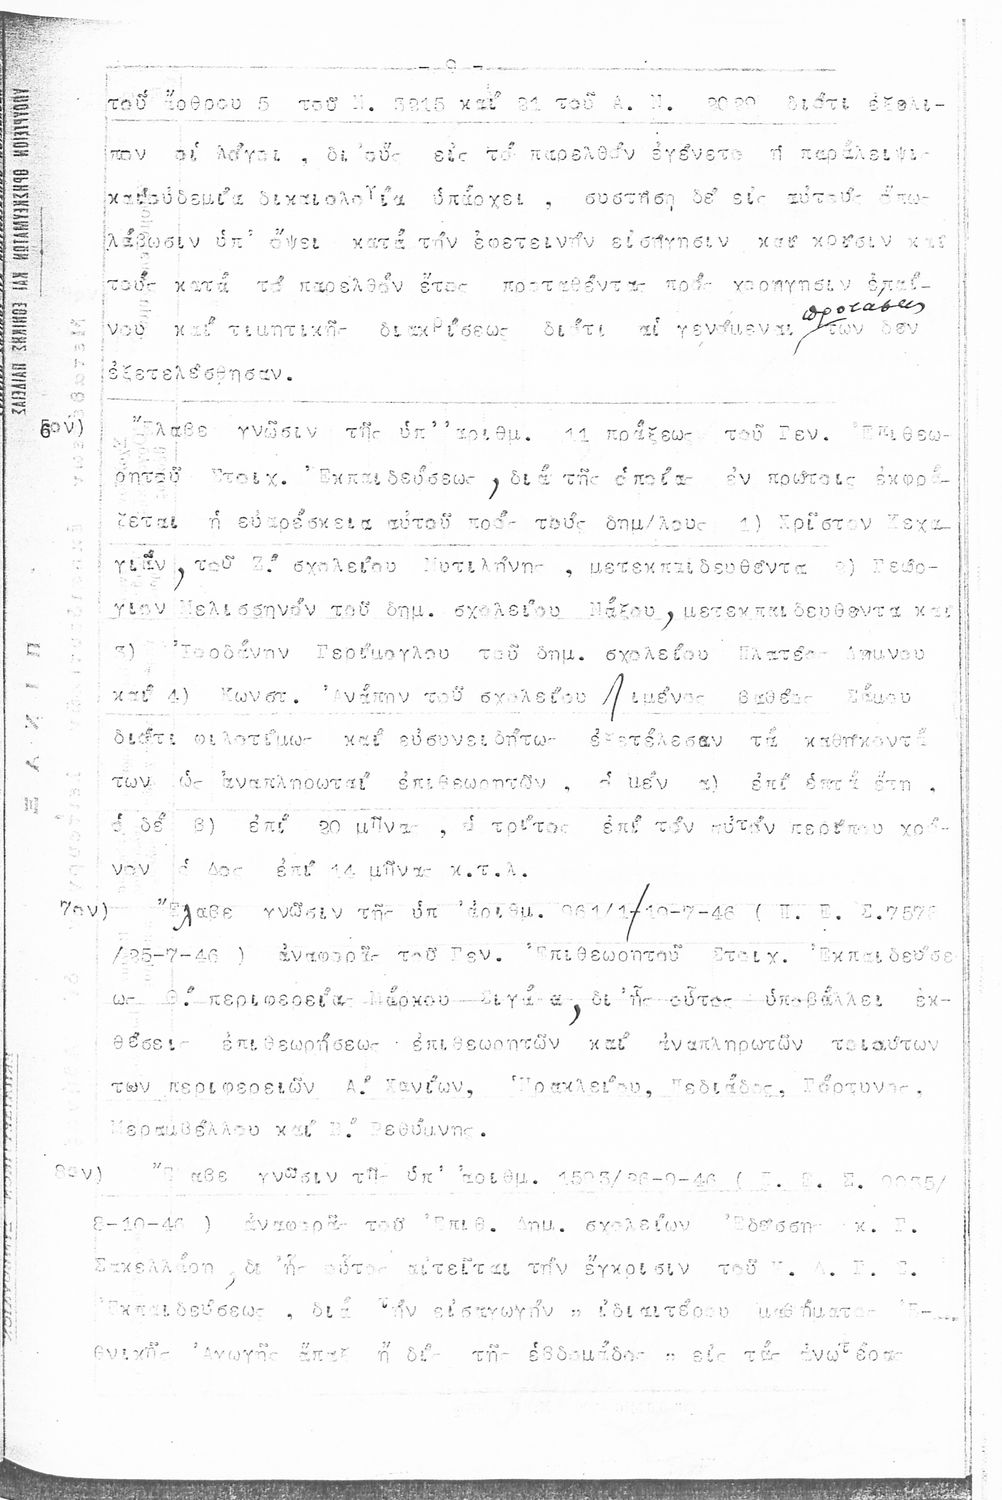 τοῦ ἄρθρου 5 τοῦ Ν. 5215 καί 21 τοῦ Α. Ν. διότι ἐξέλι-
πον οἱ λόγοι , δι'οὕς εἰς τό παρελθόν ἐγένετο ἡ παράλειψις
καίοὐδεμία δικαιολογία ὑπάρχει , συστήση δέ εἰς αὐτούς ὅπως
λάβωσιν ὑπ' ὄψει κατά τήν ἐφετεινήν εἰσήγησιν καί κρίσιν καί
τούς κατά τό παρελθόν ἔτος προταθέντας πρός χορήγησιν ἐπαί-
νου καί τιμητικῆς διακρίσεως διότι αἱ γενόμεναι προτάσεις των δέν
ἐξετελέσθησαν.
6ον) Ἔλαβε γνῶσιν τῆς ὑπ''ἀριθμ. 11 πράξεως τοῦ Γεν. Ἐπιθεω-
ρητοῦ Στοιχ. Ἐκπαιδεύσεως, διά τῆς ὁποίας ἐν πρώτοις ἐκφρά-
ζεται ἡ εὐαρέσκεια αὐτοῦ πρός τούς δημ/λους 1) Χρῖστον Κεχα-
γιᾶν, τοῦ Ζ.΄ σχολείου Μυτιλήνης , μετεκπαιδευθέντα 2) Γεώρ-
γιον Μελισσηνόν τοῦ δημ. σχολείου Νάξου, μετεκπαιδευθέντα καί
3) Ἰορδάνην Γερίμογλου τοῦ δημ. σχολείου Πλατέος Λήμνου
καί 4) Κωνστ. Ἀνάπην τοῦ σχολείου Λιμένος Βαθέος Σάμου
διότι φιλοτίμως καί εὐσυνειδήτως ἐξετέλεσαν τά καθήκοντά
των ὡς ἀναπληρωταί ἐπιθεωρητῶν , ὁ μέν α) ἐπί ἑπτά ἔτη ,
ὁ δέ β) ἐπί 20 μῆνας , ὁ τρίτος ἐπί τόν αὐτόν περίπου χρό-
νον ὁ 4ος ἐπί 14 μῆνας κ.τ.λ.
7ον) Ἔλαβε γνῶσιν τῆς ὑπ 'ἀριθμ. 961/1-10-7-46 ( Π. Ε. Σ.7578
/25-7-46 ) ἀναφορᾶς τοῦ Γεν. Ἐπιθεωρητοῦ Στοιχ. Ἐκπαιδεύσε
ως Θ.΄ περιφερείας Μάρκου Σιγάλα, δι'ἧς οὗτος ὑποβάλλει ἐκ-
θέσεις ἐπιθεωρήσεως ἐπιθεωρητῶν καί ἀναπληρωτῶν τοιούτων
των περιφερειῶν Α.΄ Χανίων, Ἡρακλείου, Πεδιάδος, Γόρτυνος,
Μεραμβέλλου καί Β.΄ Ρεθύμνης.
8ον) Ἔλαβε γνῶσιν τῆς ὑπ' ἀριθμ. 1593/26-9-46 ( Π. Ε. Σ.
8-10-46 ) ἀναφορᾶς τοῦ Ἐπιθ. Δημ. σχολείων Ἐδέσσης κ. Γ.
Σακελλάρη, δι'ἧς οὗτος αἰτεῖται τήν ἔγκρισιν τοῦ Κ. Δ. Γ. Σ.
Ἐκπαιδεύσεως , διά τήν εἰσαγωγήν " ἰδιαιτέρου μαθήματος Ἐ-
θνικῆς Ἀγωγῆς ἅπαξ ἤ δίς τῆς ἑβδομάδος " εἰς τάς ἀνωτέρας
ΥΠΟΥΡΓΕΙΟΝ ΘΡΗΣΚΕΥΜΑΤΩΝ ΚΑΙ ΕΘΝΙΚΗΣ ΠΑΙΔΕΙΑΣ